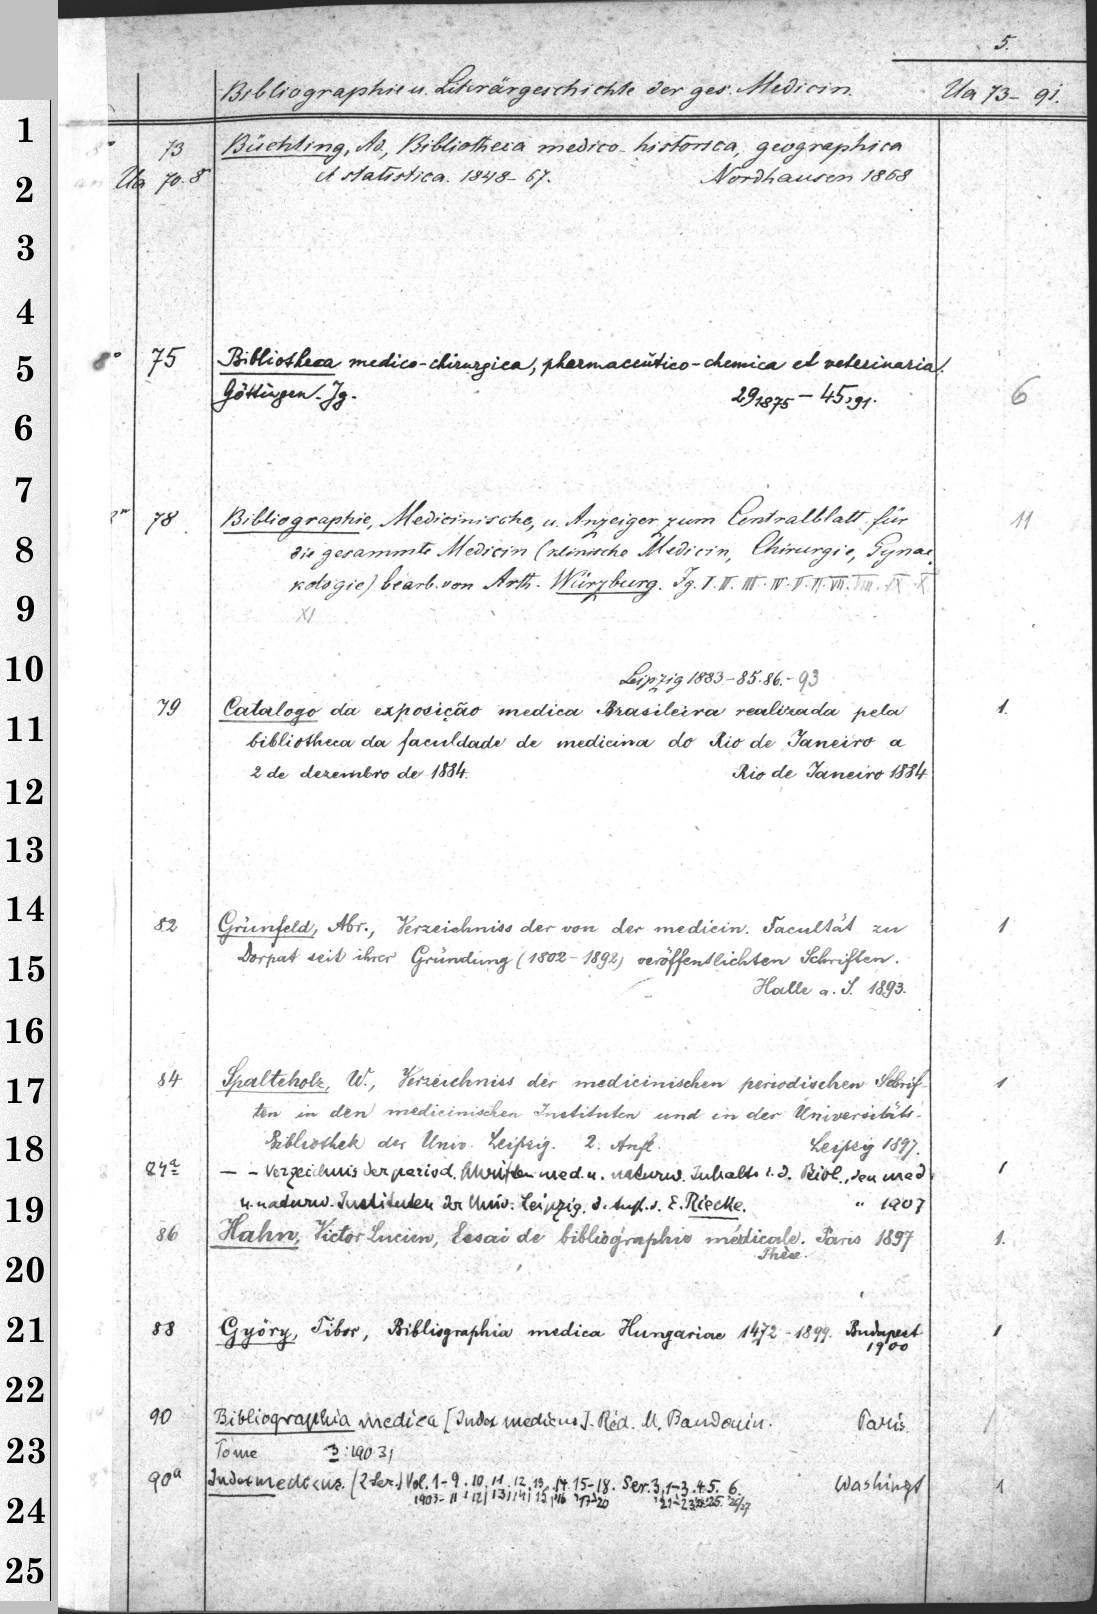 1
2
3
4
5
6
7
8
9
10
11
12
13
14
15
16
17
18
19
20
21
22
23
24
25
5.
Bibliographie u. Literärgeschichte der ges. Medicin. Ua 73 - 91.
73 Büchting, Ad., Bibliotheca medico-historica, geographica
Ua 70. 8° et statistica. 1848-67. Nordhausen 1868
8° 75 Bibliotheca medico-chirurgica, pharmaceutico-chemica et veterinaria.
Göttingen. Jg. 29,1875 - 45,91. 6
78 Bibliographie, Medicinische, u. Anzeiger zum Centralblatt für 11
die gesammte Medicin (klinische Medicin, Chirurgie, Gynae
kologie) bearb. von Arth. Würzburg. Jg. I. II. III. IV. V. VI. VII. VIII. IX. X
XI
Leipzig 1883-85.86.-93
79 Catalogo da exposição medica Brasileira realizada pela 1.
bibliotheca da faculdade de medicina do Rio de Janeiro a
2 de dezembro de 1884. Rio de Janeiro 1884
82 Grünfeld, Abr., Verzeichniss der von der medicin. Facultät zu 1
Dorpat seit ihrer Gründung (1802-1892) veröffentlichten Schriften.
Halle a. S. 1893.
84 Spalteholz, W., Verzeichniss der medicinischen periodischen Schrif- 1
ten in den medicinischen Instituten und in der Universitäts-
Bibliothek der Univ. Leipzig. 2. Aufl. Leipzig 1897.
84a — – Verzeichnis der period. Schriften med. u. naturw. Inhalts i. d. Bibl., den med. 1
u. naturw. Instituten der Univ. Leipzig. 3. Aufl. v. E. Riecke. " 1907
86 Hahn, Victor Lucien, Essai de bibliographie médicale. Paris 1897 1.
Thèse.
88 Győry, Tibor, Bibliographia medica Hungariae 1472-1899. Budapest 1
1900
90 Bibliographia medica [Index medicus]. Réd. M. Baudouin. Paris
Tome 3:1903
90a Index medicus. (2 Ser.) Vol. 1-9. 10. 11. 12. 13. 14. 15-18. Ser. 3, 1-3. 4. 5. 6. Washingt 1